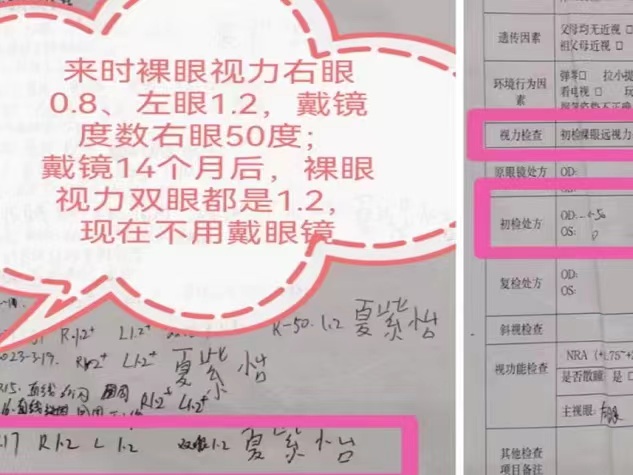 来时裸眼视力右眼
0.8、左眼1.2，戴镜
度数右眼50度；
戴镜14个月后，裸眼
视力双眼都是1.2，
现在不用戴眼镜
R1.2⁺ L1.2⁺
R-50. 1.2 夏紫怡
023-3.19. R1.2⁺ L1.2⁺ 夏紫怡
R1.2⁺ L1.2⁺
17 R1.2 L 1.2 双眼1.2 夏紫怡
遗传因素
父母均无近视
祖父母近视 □
环境行为因
素
弹琴□ 拉小提
看电视 □ 玩
视力检查
初检裸眼远视力
原眼镜处方
OD:
初检处方
OD: -50
OS: 0
复检处方
OD:
OS:
斜视检查
视功能检查
NRA (+1.75
是否散瞳 是 □
主视眼:
其他检查
项目备注